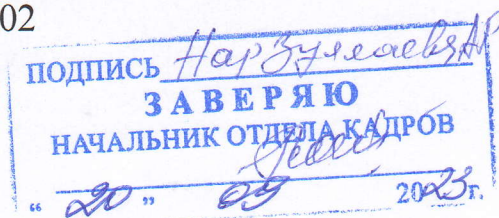 02
ПОДПИСЬ Нарзуллаевя А.Р.
ЗАВЕРЯЮ
НАЧАЛЬНИК ОТДЕЛА КАДРОВ
“ 20 ” 09 2023 г.